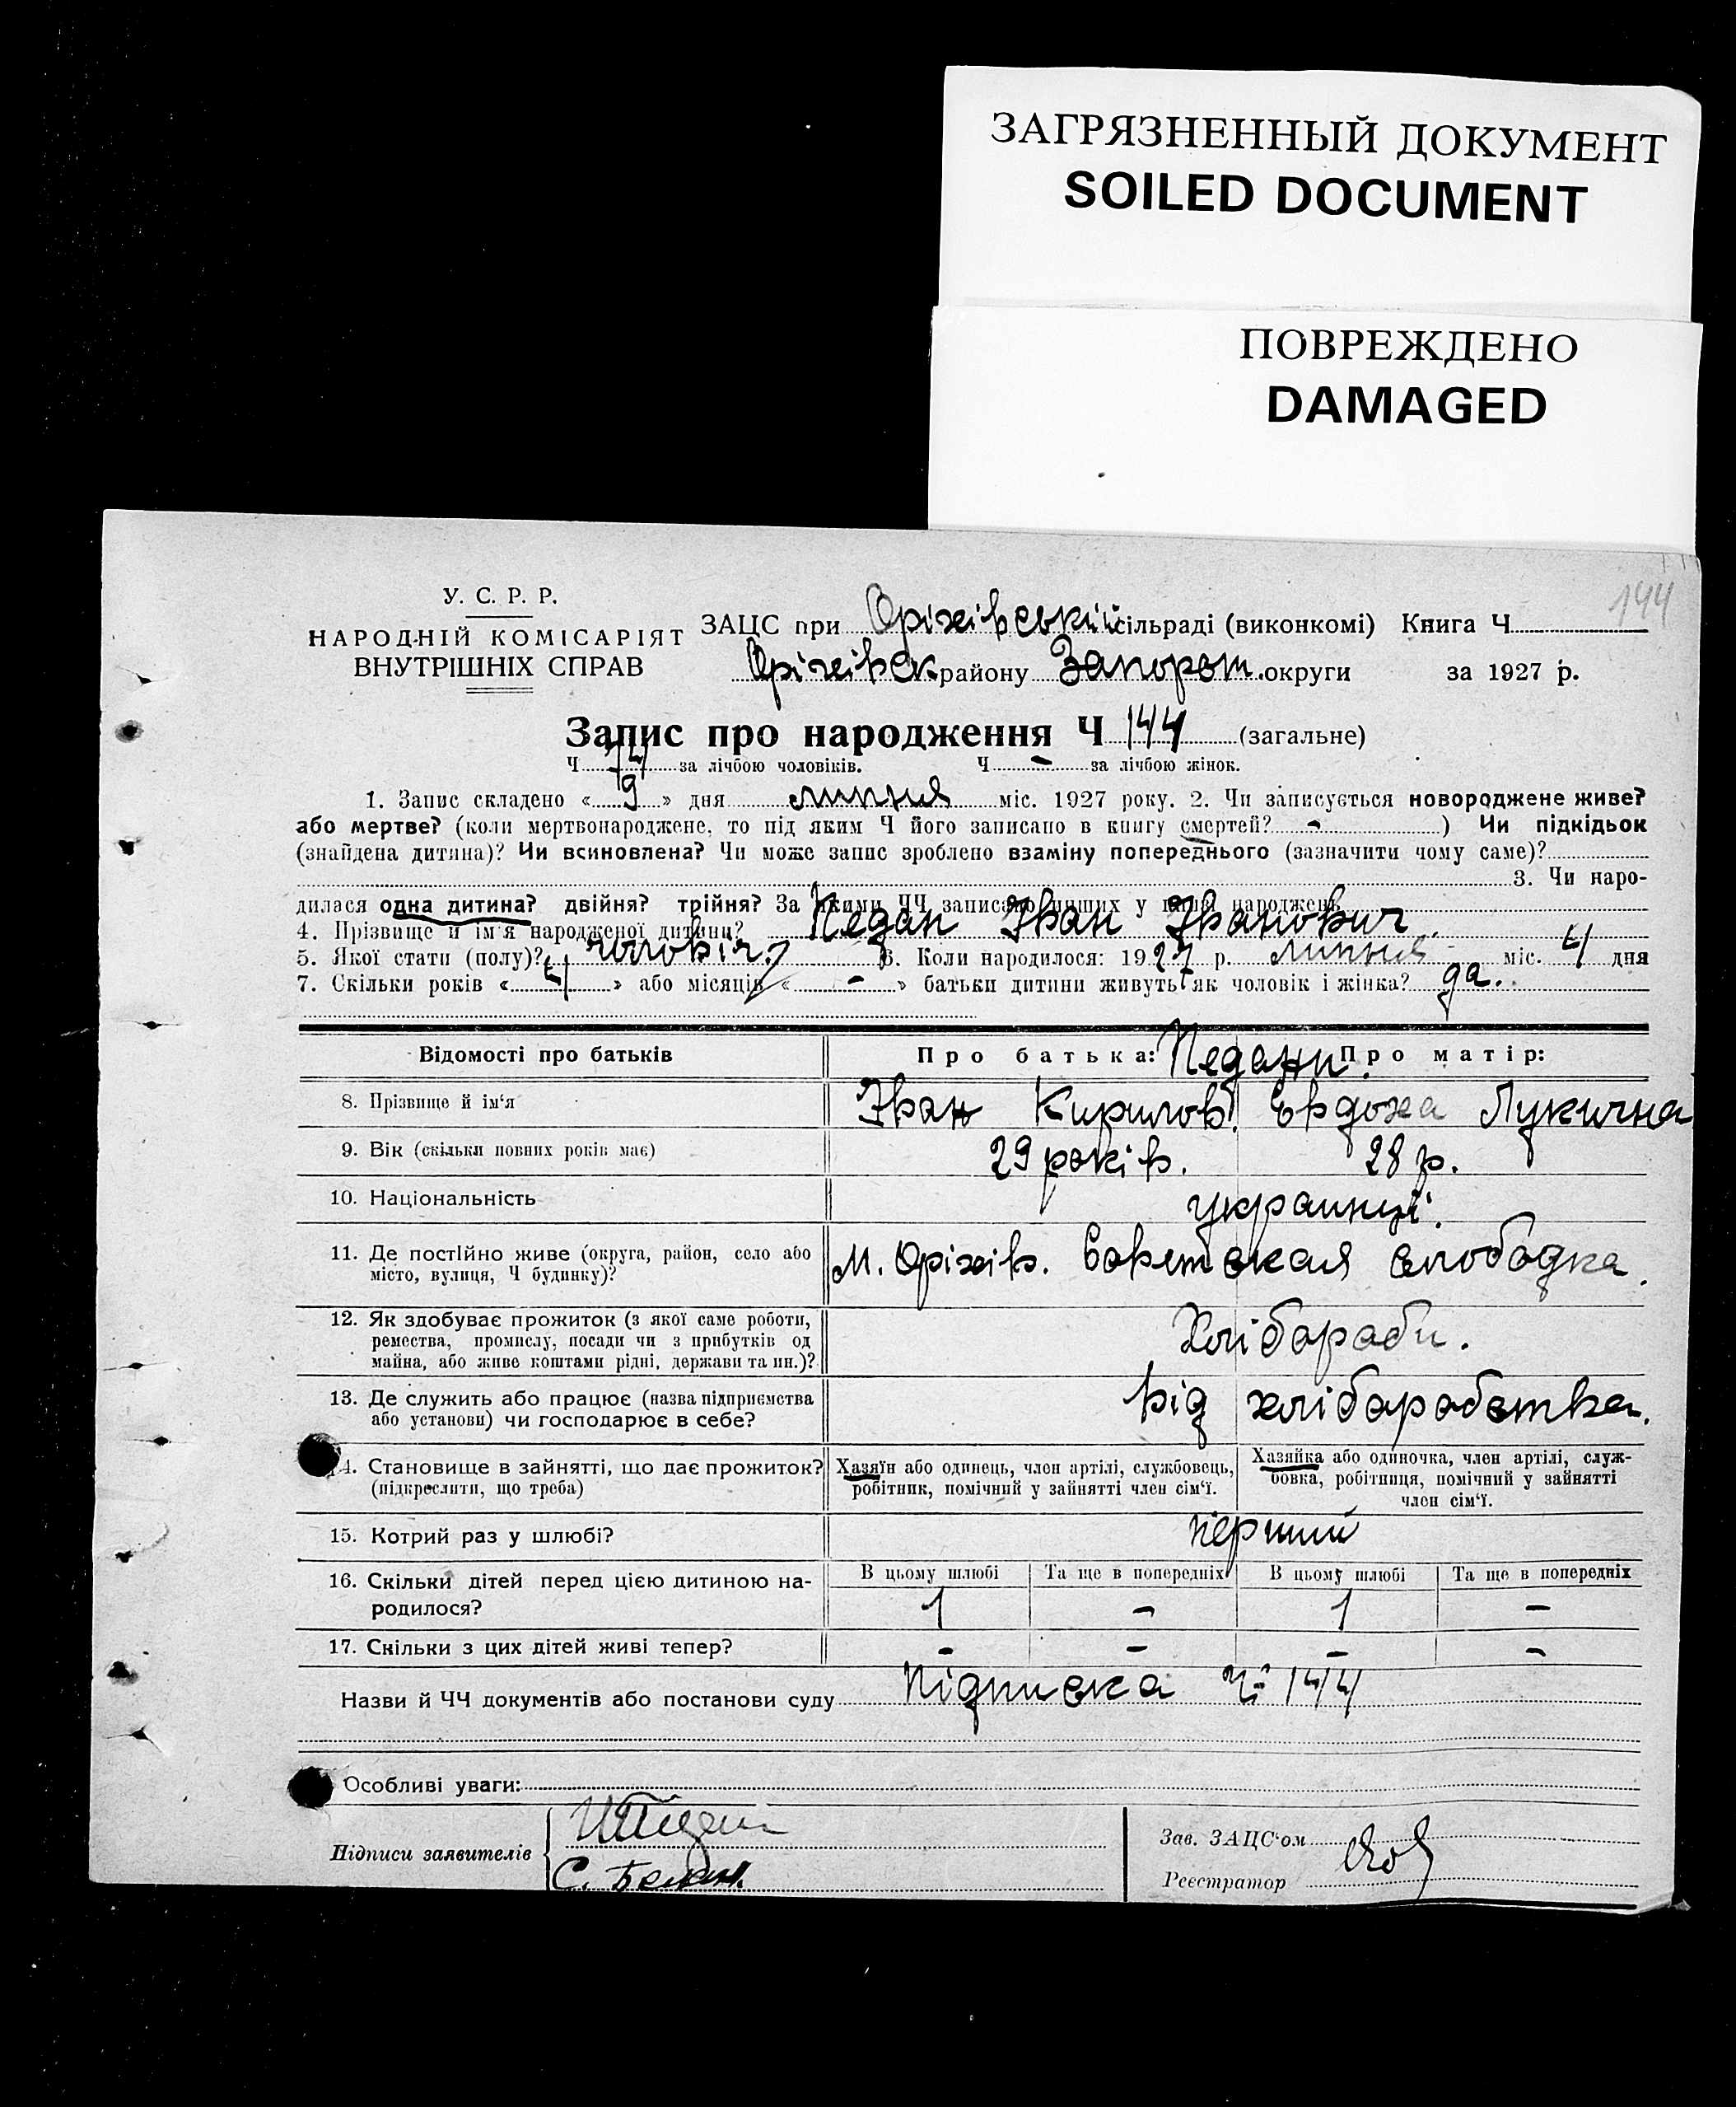 ЗАГРЯЗНЕННЫЙ ДОКУМЕНТ
SOILED DOCUMENT
ПОВРЕЖДЕНО
DAMAGED
144
У. С. Р. Р.
НАРОДНІЙ КОМІСАРІЯТ
ВНУТРІШНІХ СПРАВ
ЗАЦС при Оріхівській сільраді (виконкомі) Книга Ч.
Оріхівск району Запорож. округи за 1927 р.
Запис про народження Ч 144 (загальне)
Ч 74 за лічбою чоловіків. Ч - за лічбою жінок.
1. Запис складено « 9 » дня липня міс. 1927 року. 2. Чи записується новороджене живе?
або мертве? (коли мертвонароджене, то під яким Ч його записано в книгу смертей? - ) Чи підкідьок
(знайдена дитина)? Чи всиновлена? Чи може запис зроблено взаміну попереднього (зазначити чому саме)?
3. Чи наро-
дилася одна дитина? двійня? трійня? За якими ЧЧ записано інших у книзі народжень
4. Прізвище й ім'я народженої дитини? Педан Іван Іванович.
5. Якої стати (полу)? чоловіч. 6. Коли народилося: 1927 р. липня міс. 4 дня
7. Скільки років « 4 » або місяців « - » батьки дитини живуть як чоловік і жінка? да.
Відомості про батьків Про батька: Педани. Про матір:
8. Прізвище й ім'я Іван Кирилов. Евдоха Лукична
9. Вік (скільки повних років має) 29 років. 28 р.
10. Національність украинці.
11. Де постійно живе (округа, район, село або
місто, вулиця, Ч будинку)? М. Оріхів. Советская слободка.
12. Як здобуває прожиток (з якої саме роботи,
ремества, промислу, посади чи з прибутків од
майна, або живе коштами рідні, держави та ин.)? Хлібороби.
13. Де служить або працює (назва підприємства
або установи) чи господарює в себе? від хліборобства.
14. Становище в зайнятті, що дає прожиток?
(підкреслити, що треба)
Хазяїн або одинець, член артілі, службовець,
робітник, помічний у зайнятті член сім'ї.
Хазяйка або одиночка, член артілі, служ-
бовка, робітниця, помічний у зайнятті
член сім'ї.
15. Котрий раз у шлюбі? перший
16. Скільки дітей перед цією дитиною на-
родилося?
В цьому шлюбі Та ще в попередніх В цьому шлюбі Та ще в попередніх
1 - 1 -
17. Скільки з цих дітей живі тепер? - - - -
Назви й ЧЧ документів або постанови суду Підписка № 144
Особливі уваги:
Підписи заявителів
И Педан
Зав. ЗАЦС'ом
Реєстратор